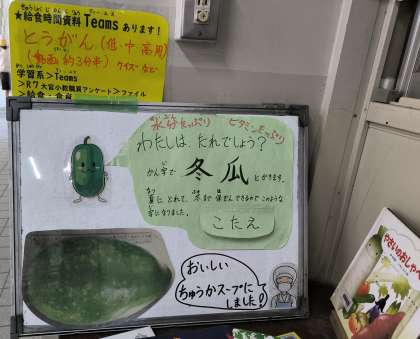 ★給食時間資料Teamsあります!
とうがん(低・中・高用)
(動画 約3分半) クイズなど
学習系>Teams
>R7
>給食・食育
水分たっぷり ビタミンEたっぷり
わたしは、だれでしょう?
かん字で 冬瓜 とかきます。
夏にとれて、冬まで保ぞんできるのでこのような
字になりました。
こたえ
おいしい
ちゅうかスープに
しました!
やさいのおしゃべ